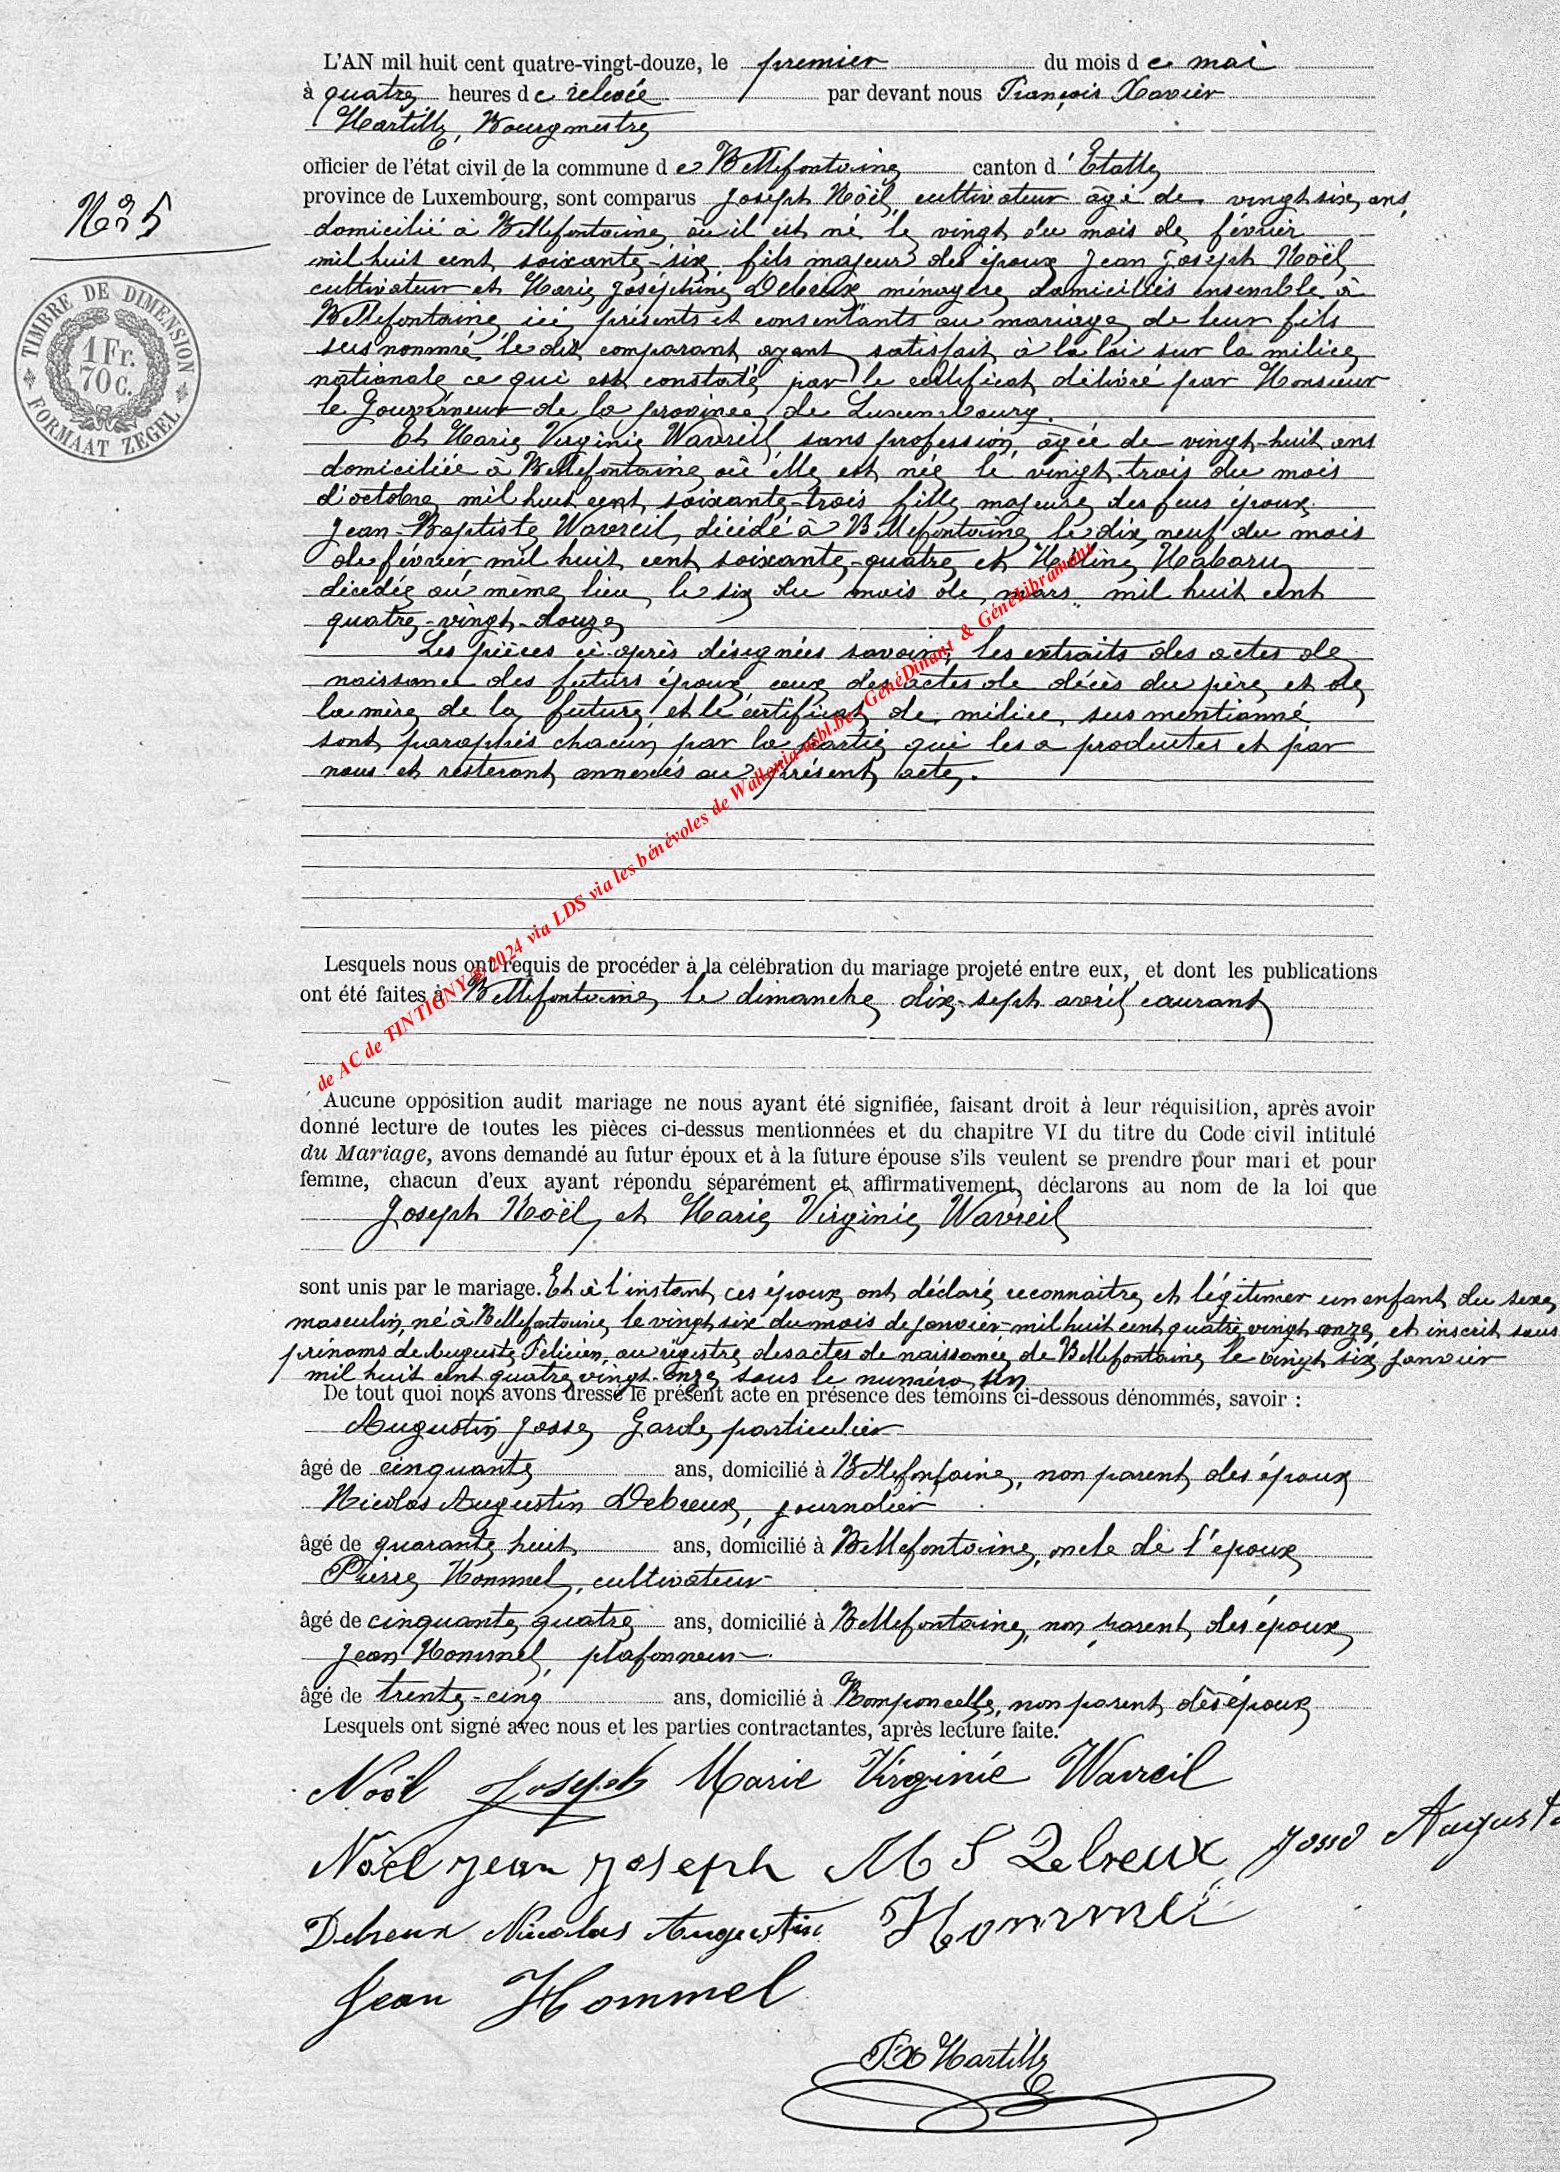 L'AN mil huit cent quatre-vingt-douze, le premier du mois de mai
à quatre heures de relevée par devant nous François Xavier
Hartille, Bourgmestre
officier de l'état civil de la commune de Bellefontaine canton d'Etalle
province de Luxembourg, sont comparus Joseph Noël, cultivateur âgé de vingt six ans,
domicilié à Bellefontaine où il est né le vingt du mois de février
mil huit cent soixante-six, fils majeur des époux Jean Joseph Noël,
cultivateur et Marie Joséphine Debreux ménagère domiciliés ensemble à
Bellefontaine, ici présents et consentants au mariage de leur fils
susnommé, le dit comparant ayant satisfait à la loi sur la milice
nationale ce qui est constaté par le certificat délivré par Monsieur
le Gouverneur de la province de Luxembourg.
Et Marie Virginie Wavreil, sans profession, âgée de vingt-huit ans
domiciliée à Bellefontaine où elle est née le vingt-trois du mois
d'octobre mil huit cent soixante-trois fille majeure des feus époux
Jean-Baptiste Wavreil, décédé à Bellefontaine le dix neuf du mois
de février mil huit cent soixante-quatre et Habaru
décédée au même lieu le six du mois de mars mil huit cent
quatre-vingt-douze
Les pièces ci-après désignées savoir: les extraits des actes de
naissance des futurs époux, ceux des actes de décès du père et de
la mère de la future, et le certificat de milice susmentionné
sont paraphés chacun par la partie qui les a produites et par
nous et resteront annexés au présent acte.
Nº 5
TIMBRE DE DIMENSION
1 Fr.
70 C.
FORMAAT ZEGEL
de AC de TINTIGNY © 2024 via LDS via les bénévoles de Wallonia-asbl.be - GénéDinant & GénéLibramont
Lesquels nous ont requis de procéder à la célébration du mariage projeté entre eux, et dont les publications
ont été faites à Bellefontaine le dimanche dix-sept avril courant
Aucune opposition audit mariage ne nous ayant été signifiée, faisant droit à leur réquisition, après avoir
donné lecture de toutes les pièces ci-dessus mentionnées et du chapitre VI du titre du Code civil intitulé
du Mariage, avons demandé au futur époux et à la future épouse s'ils veulent se prendre pour mari et pour
femme, chacun d'eux ayant répondu séparément et affirmativement, déclarons au nom de la loi que
Joseph Noël, et Marie Virginie Wavreil
sont unis par le mariage. Et à l'instant ces époux ont déclaré reconnaître et légitimer un enfant du sexe
masculin, né à Bellefontaine le vingt six du mois de janvier mil huit cent quatre vingt onze et inscrit sous
prénoms de Auguste Félicien, au registre des actes de naissance de Bellefontaine le vingt six janvier
mil huit cent quatre vingt-onze sous le numéro un
De tout quoi nous avons dressé le présent acte en présence des témoins ci-dessous dénommés, savoir :
Augustin Josse Garde particulier
âgé de cinquante ans, domicilié à Bellefontaine, non parent des époux
Nicolas Augustin Debreux, journalier
âgé de quarante huit ans, domicilié à Bellefontaine, oncle de l'époux
Pierre Hommel, cultivateur
âgé de cinquante quatre ans, domicilié à Bellefontaine, non parent des époux
Jean Hommel, plafonneur
âgé de trente-cinq ans, domicilié à Bomponcelle, non parent des époux
Lesquels ont signé avec nous et les parties contractantes, après lecture faite.
Noël Joseph Marie Virginie Wavreil
Noël Jean Joseph M S Debreux Josse August
Debreux Nicolas Augustin Hommel
Jean Hommel
FX Hartille